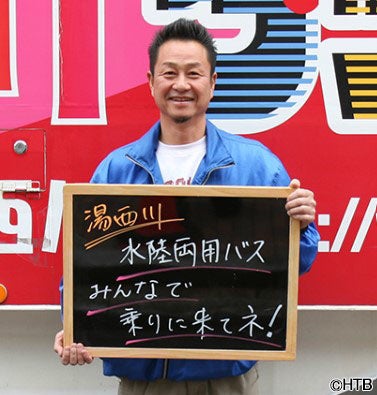 湯西川
水陸両用バス
みんなで
乗りに来てネ!
://
©HTB